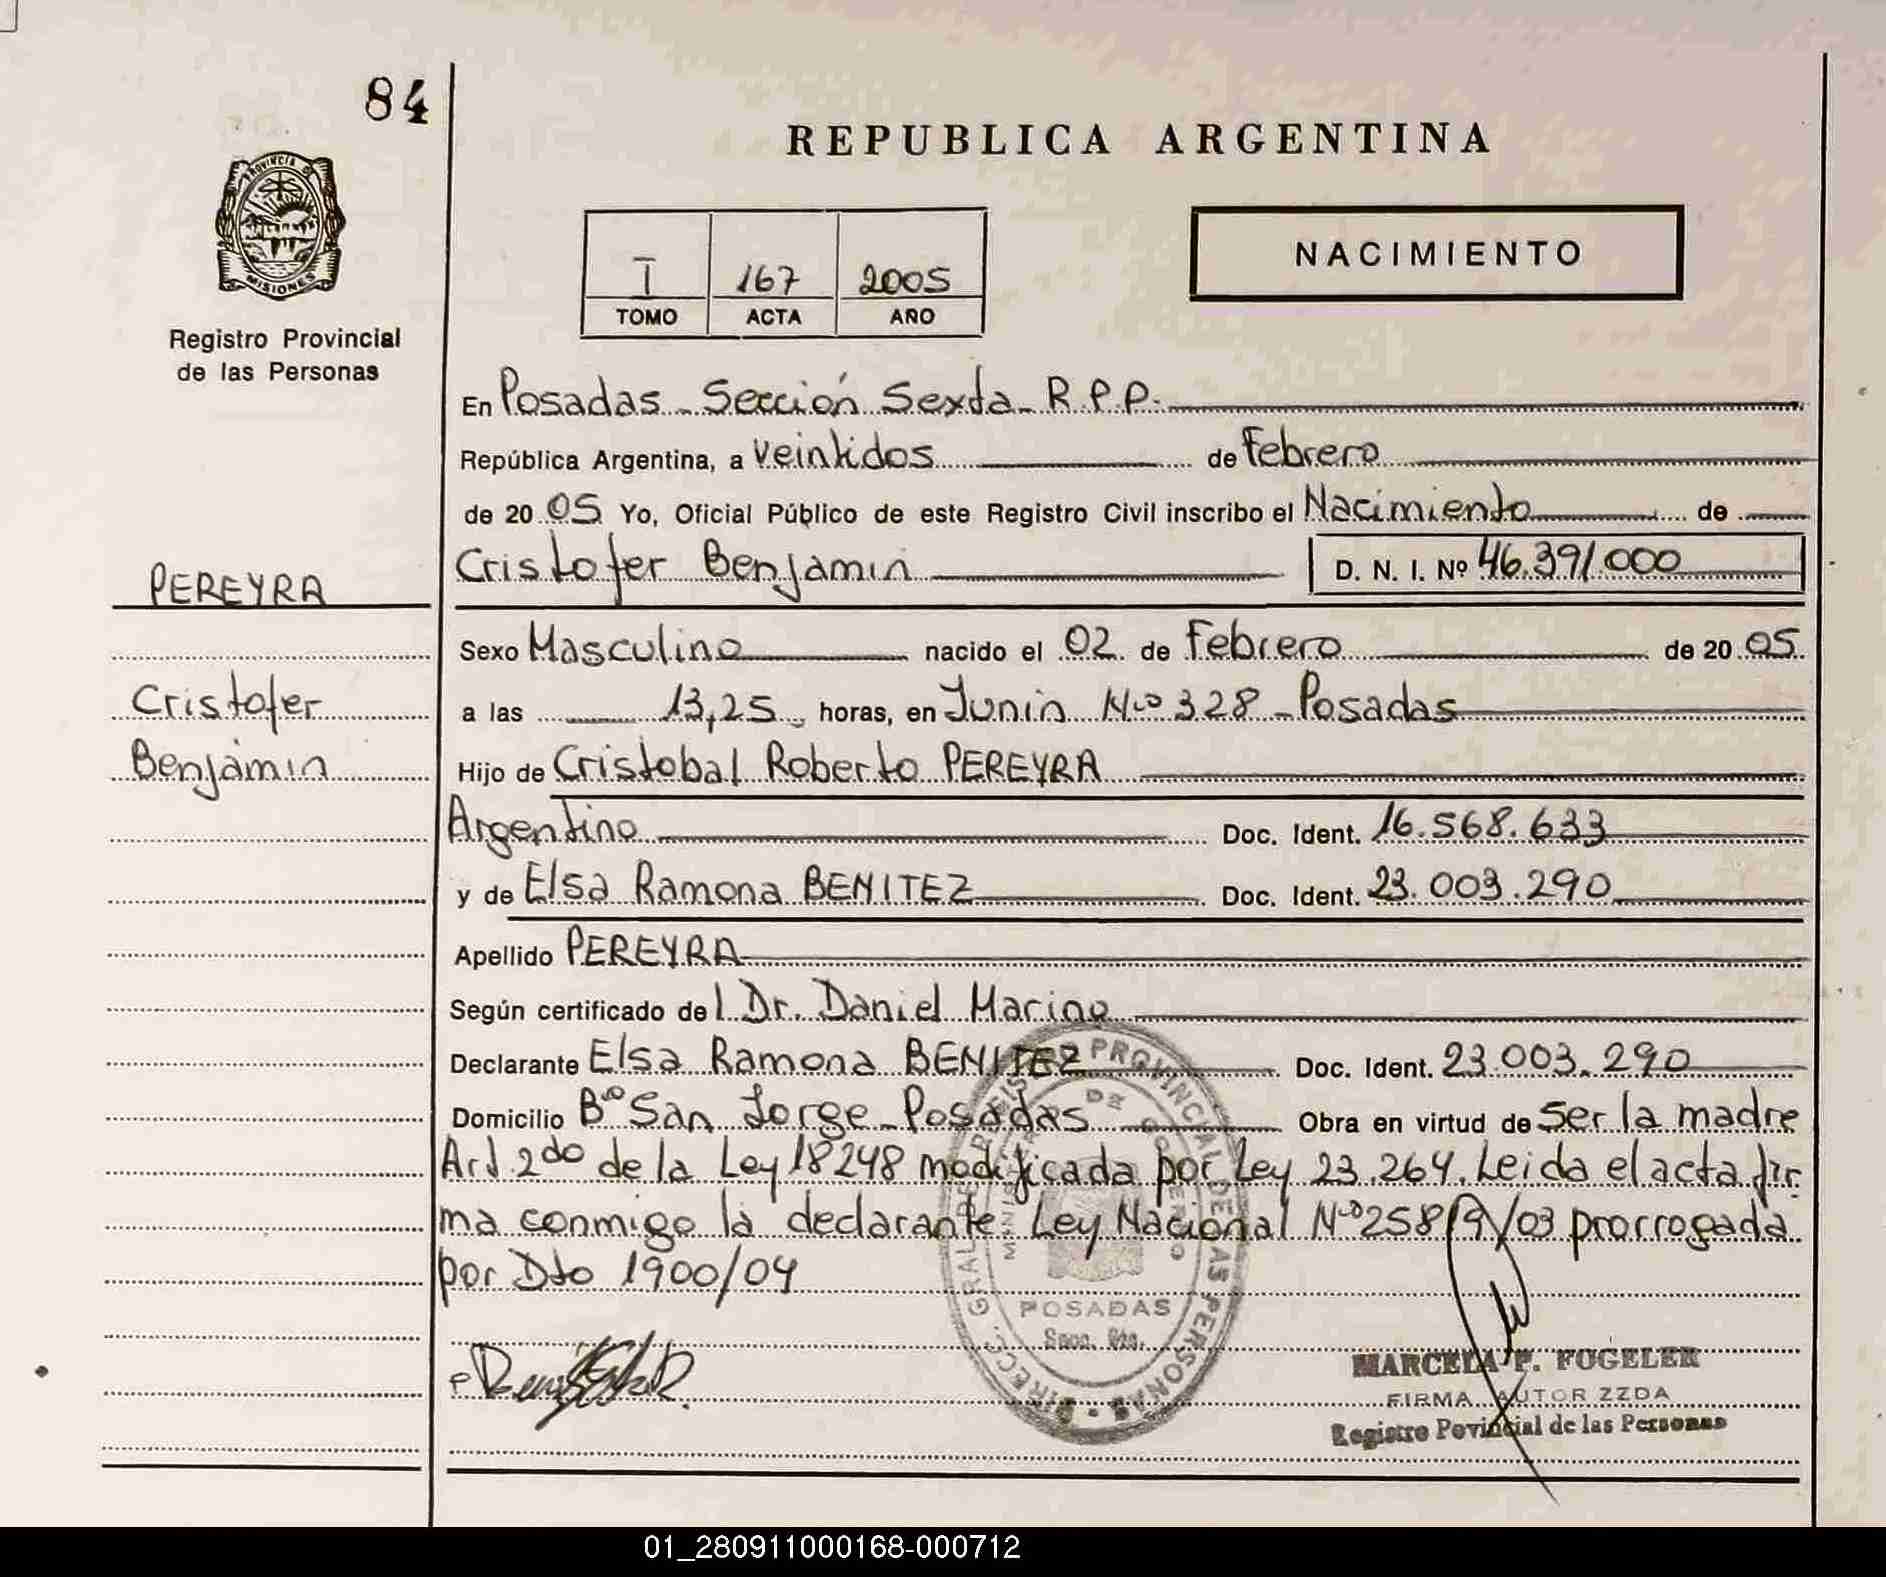 84
REPUBLICA ARGENTINA
PROVINCIA DE
MISIONES
Registro Provincial
de las Personas
I 167 2005
TOMO ACTA AÑO
NACIMIENTO
En Posadas - Sección Sexta - R.P.P.
República Argentina, a Veintidos de Febrero
de 20 05 Yo, Oficial Público de este Registro Civil inscribo el Nacimiento de
Cristofer Benjamin D. N. I. Nº 46.391.000
PEREYRA
Cristofer
Benjamin
Sexo Masculino nacido el 02 de Febrero de 20 05
a las 13,25 horas, en Junin Nº 328 - Posadas
Hijo de Cristobal Roberto PEREYRA
Argentino Doc. Ident. 16.568.633
y de Elsa Ramona BENITEZ Doc. Ident. 23.003.290
Apellido PEREYRA
Según certificado de l Dr. Daniel Marino
Declarante Elsa Ramona BENITEZ Doc. Ident. 23.003.290
Domicilio Bº San Jorge - Posadas Obra en virtud de Ser la madre
Art 2do de la Ley 18248 modificada por Ley 23.264. Leida el acta fir
ma conmigo la declarante. Ley Nacional Nº 25819/03 prorrogada
por Dto 1900/04
DIRECC. GRAL. DE REGISTRO PROVINCIAL DE LAS PERSONAS
POSADAS
Secc. 6ta.
MARCELA F. FOGELER
FIRMA AUTORIZZDA
Registro Povincial de las Personas
01_280911000168-000712